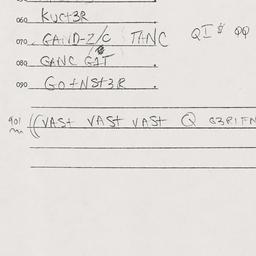 060 KUCT3R
070 GAIND-Z/C TANC QI$ QQ
080 GANC GIT
090 GOTNST3R
901 ((VAST VAST VAST Q G3RIFN